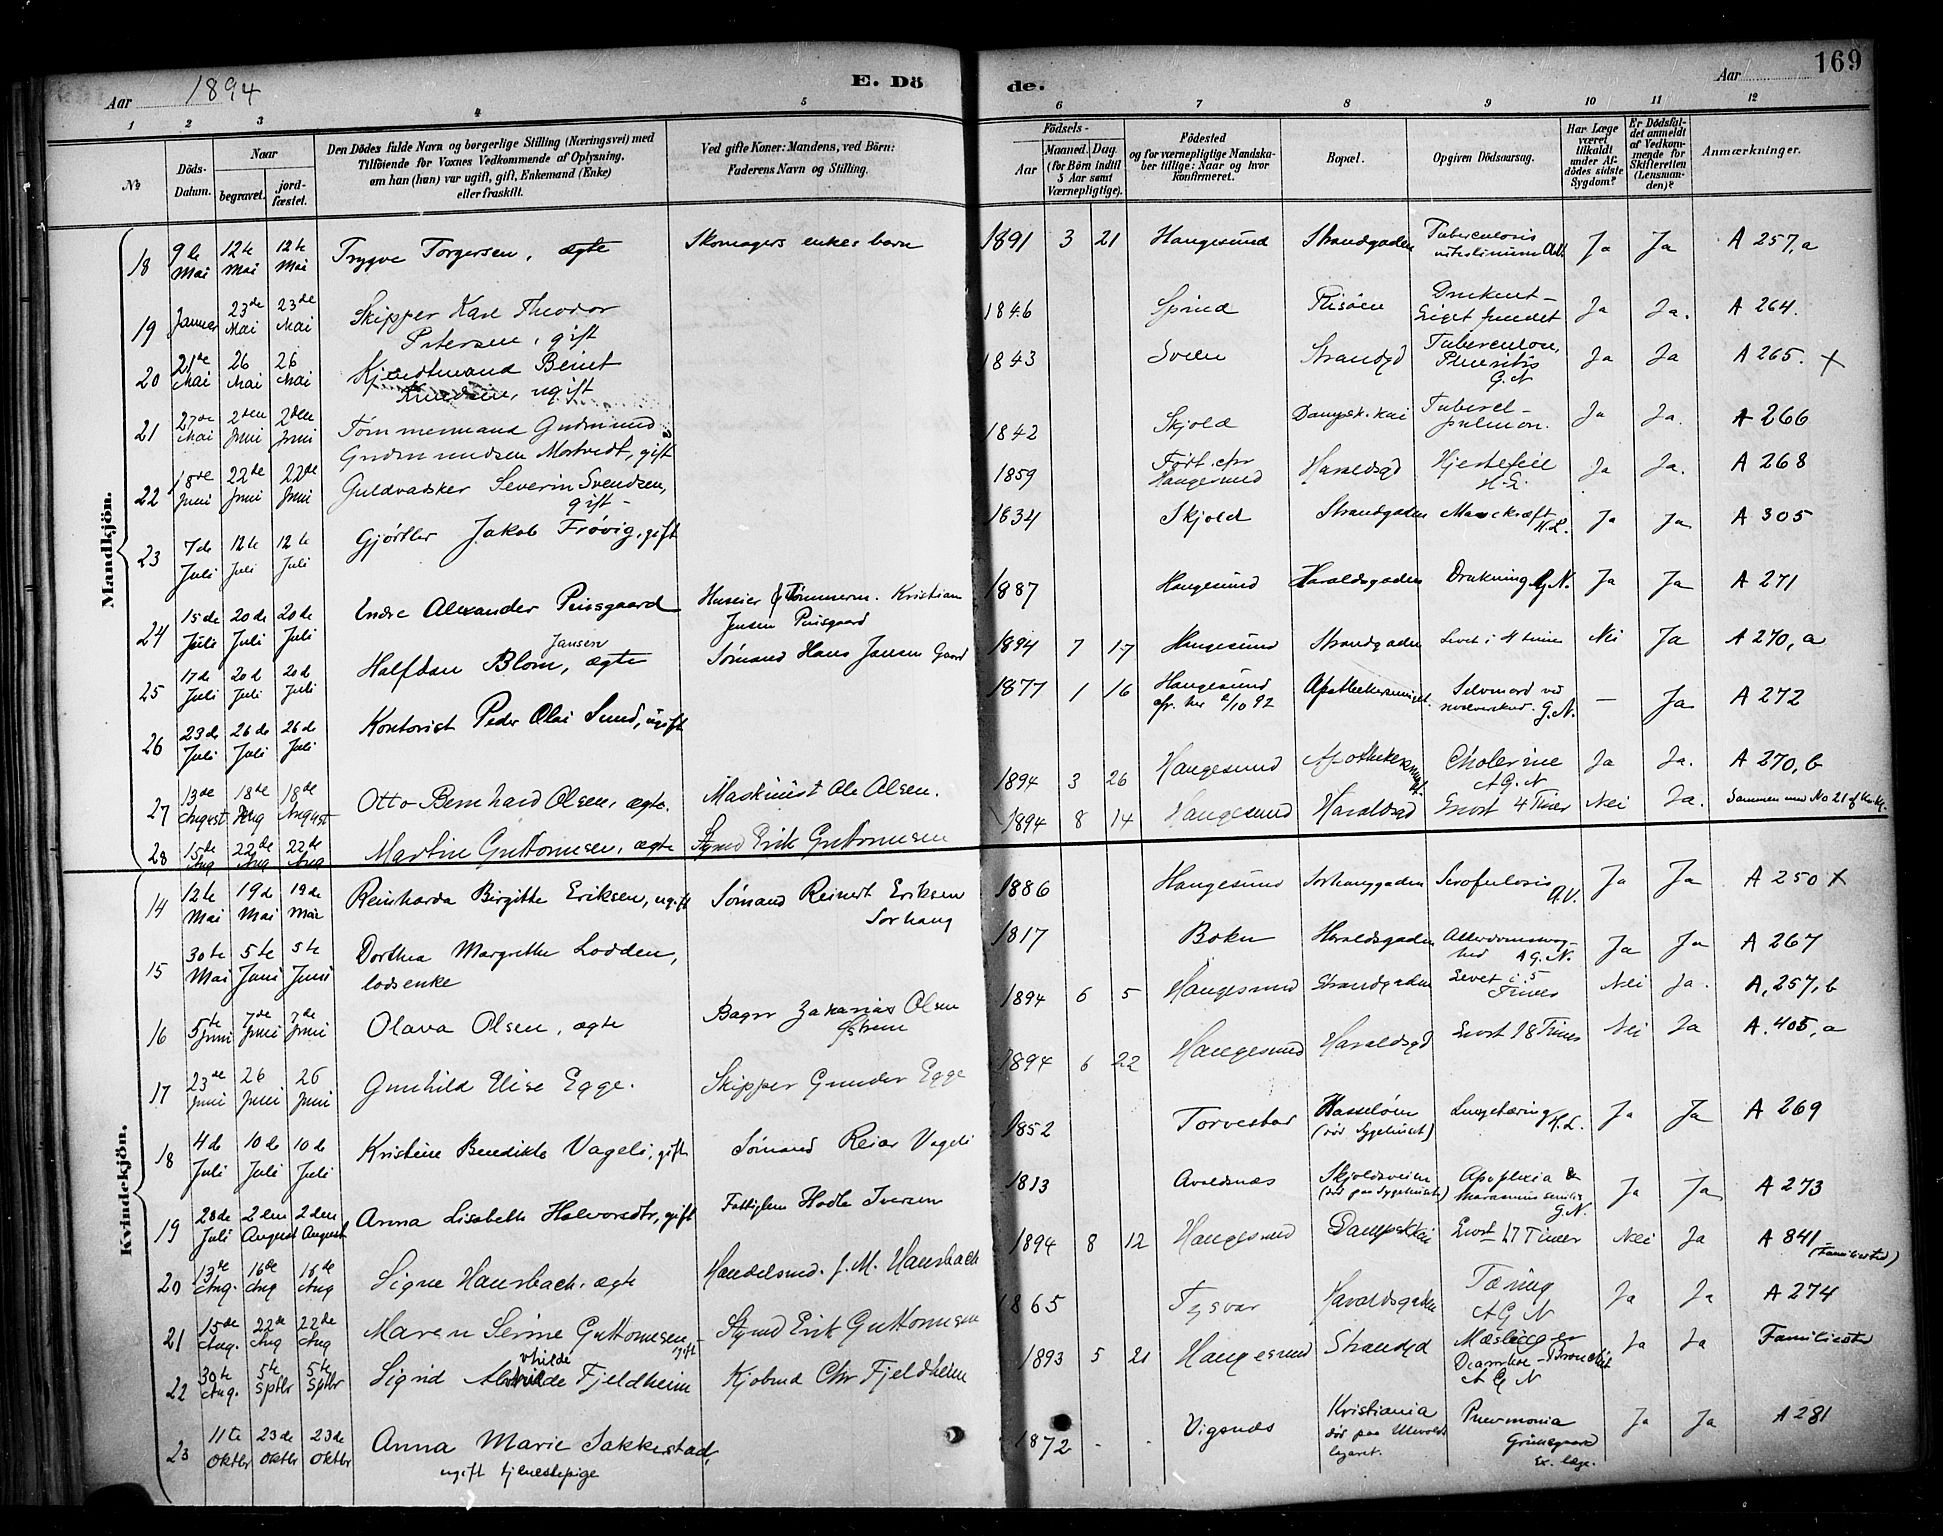 169
Aar 1894 E. Dö de. Aar
1 2 3 4 5 6 7 8 9 10 11 12
№ Döds-Datum. Naar begravet. jordfæstet. Den Dödes fulde Navn og borgerlige Stilling (Næringsvei) med Tilföiende for Voxnes Vedkommende af Oplysning, om han (hun) var ugift, gift, Enkemand (Enke) eller fraskilt. Ved gifte Koner: Mandens, ved Börn: Faderens Navn og Stilling. Födsels- Aar Maaned. Dag. (for Börn indtil 5 Aar samt Værnepligtige). Födested og for værnepligtige Mandskaber tillige: Naar og hvor konfirmeret. Bopæl. Opgiven Dödsaarsag. Har Læge været tilkaldt under Afdödes sidste Sygdom? Er Dödsfaldet anmeldt af Vedkommende for Skifteretten (Lensmanden)? Anmærkninger.
Mandkjön.
18 9de Mai 12te Mai 12te Mai Trygve Torgersen, ægte Skomagers enkes barn 1891 3 21 Haugesund Strandgaden Tuberculosis Ja Ja A 257, a
19 Januar 23de Mai 23de Mai Skipper Karl Theodor Petersen, gift 1846 Spind Risöen Druknet - Liget fundet Ja Ja. A 264.
20 21de Mai 26 Mai 26 Mai Kjøbmand Beint Knudsen, ugift 1843 Sveen Strandgd Tuberculon, Pleuritis G.N Ja Ja A 265. X
21 27de Mai 2den Juni 2den Juni Tømmermand Gudmund Gudmundsen Mortvedt, gift 1842 Skjold Dampsk. kai Tubercl- pulmon. Ja Ja. A 266
22 18de Juni 22de Juni 22de Juni Guldvasker Severin Svendsen, gift - 1859 Haugesund Haraldsgd Hjertefeil Ja Ja. A 268
23 7de Juli 12te Juli 12te Juli Gjørtler Jakob Frøvig, gift 1834 Skjold Strandgaden K.L. Ja Ja A 305
24 15de Juli 20de Juli 20de Juli Endre Alexander Puisgaard Huseier Tømmerm. Kristian Jensen Puisgaard 1887 Haugesund Haraldsgaden Drukning G.N. Ja Ja A 271
25 17de Juli 20de Juli 20de Juli Halfdan Blom Jansen, ægte Sømand Hans Jansen Gaard 1894 7 17 Haugesund Strandgaden Levet i timer Nei Ja A 270, a
26 23de Juli 26de Juli 26de Juli Kontorist Peder Olai Sund, ugift 1877 1 16 Haugesund 2/10 92 Selvmord ved G.N. — Ja A 272
27 13de August 18de Aug 18de August Otto Bernhard Olsen, ægte. Maskinist Ole Olsen. 1894 3 26 Haugesund Cholerine A G. N Ja Ja. A 270, b
28 15de Aug 22de Aug 22de Aug Martin Guttormsen, ægte Styrmd Erik Guttormsen 1894 8 14 Haugesund Haraldsgd Levet 4 Timer Nei Ja. Sammen med No 21 af Kvk.
Kvindekjön.
14 12te Mai 19de Mai 19de Mai Reinharda Birgitte Eriksen, ugift Sømand Reinert Eriksen Sorhaug 1886 Haugesund Sorhauggaden Scrofulosis A.V. Ja Ja A 250 X
15 30te Mai 5te Juni 5te Juni Dorthea Margrethe Lodden, lodsenke 1817 Bokn Haraldsgaden Alderdomssvaghed A G. N. Ja Ja A 267
16 5te Juni 7de Juni 7de Juni Olava Olsen, ægte Bager Zakarias Olsen 1894 6 5 Haugesund Strandgaden Levet i 5 Timer Nei Ja. A, 257, b
17 23de Juni 26 Juni 26 Juni Gunhild Elise Egge. Skipper Gunder Egge 1894 6 22 Haugesund Haraldsgd Levet 18 Timer Nei Ja A. 405, a
18 4de Juli 10de Juli 10de Juli Kristine Benedikte Vageli, gift Sømand Reiar Vageli 1852 Torvestad Hasseløen (død Sygehuset) Lungetæring K.L. Ja Ja A 269
19 28de Juli 2den August 2den August Anna Lisabeth Halvorsdtr, gift Fattiglem Hadle Iversen 1813 Avaldsnæs Skjoldsveien (død paa Sygehuset) Apoplexia & Marasmus senilis G.N. Ja Ja A 273
20 13de Aug. 16de Aug 16de Aug Signe Hausbach, ægte Handelsmd. J. M. Hausbach 1894 8 12 Haugesund Dampskkai Levet 17 Timer Nei Ja A 841 (Familiested)
21 15de Aug. 22de Aug 22de Aug Maren Serine Guttormsen, gift Styrmd Erik Guttormsen 1865 Tysvær Haraldsgaden Tæring A G N Ja Ja A 274
22 30te Aug. 5te Sptbr 5te Sptbr Sigrid Alvhilde Fjeldheim Kjøbmd Chr Fjeldheim 1893 5 21 Haugesund Strandgd Mæslinger Diarrhoe - Bronchit A G N Ja Ja Familiested
23 11te Oktbr 23de Oktbr 23de Oktbr Anna Marie Sakkestad, ugift tjenestepige 1872 - - Vigsnæs Kristiania død paa Ullevolds lazaret. Pneumonia Grünegaard Ex. læge. Ja Ja A 281